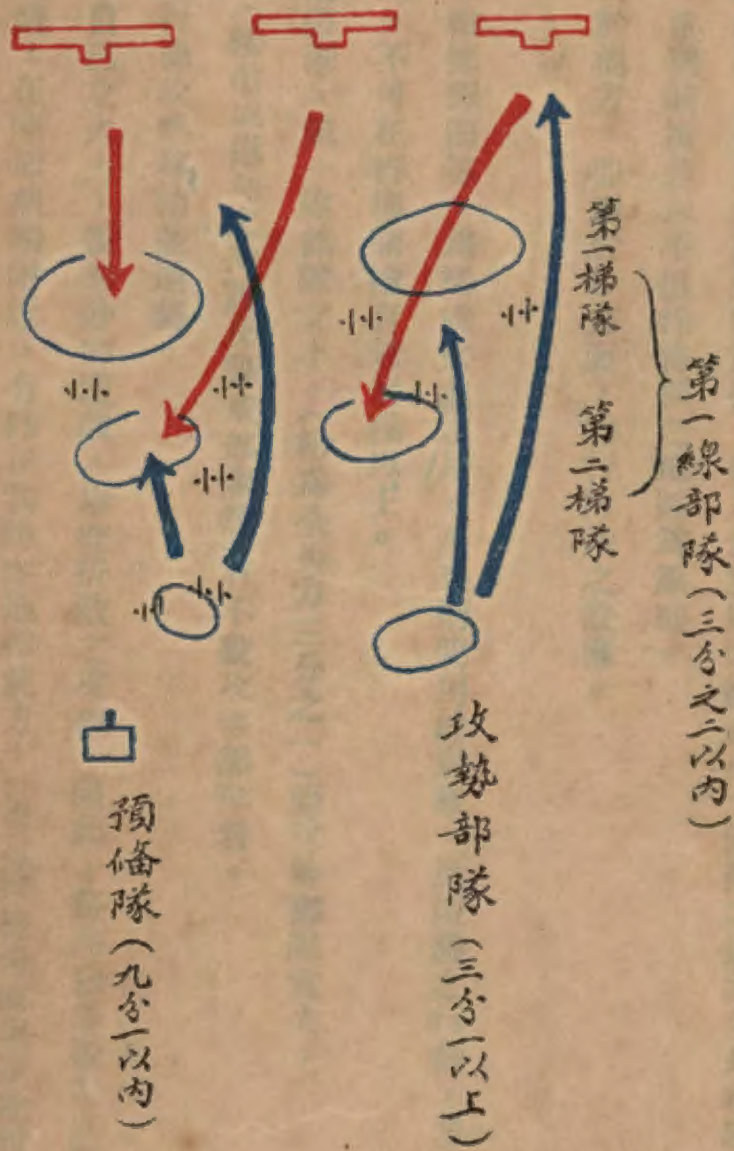 第一線部隊(三分之二以内)
第一梯隊
第二梯隊
攻勢部隊(三分一以上)
預備隊(九分一以内)